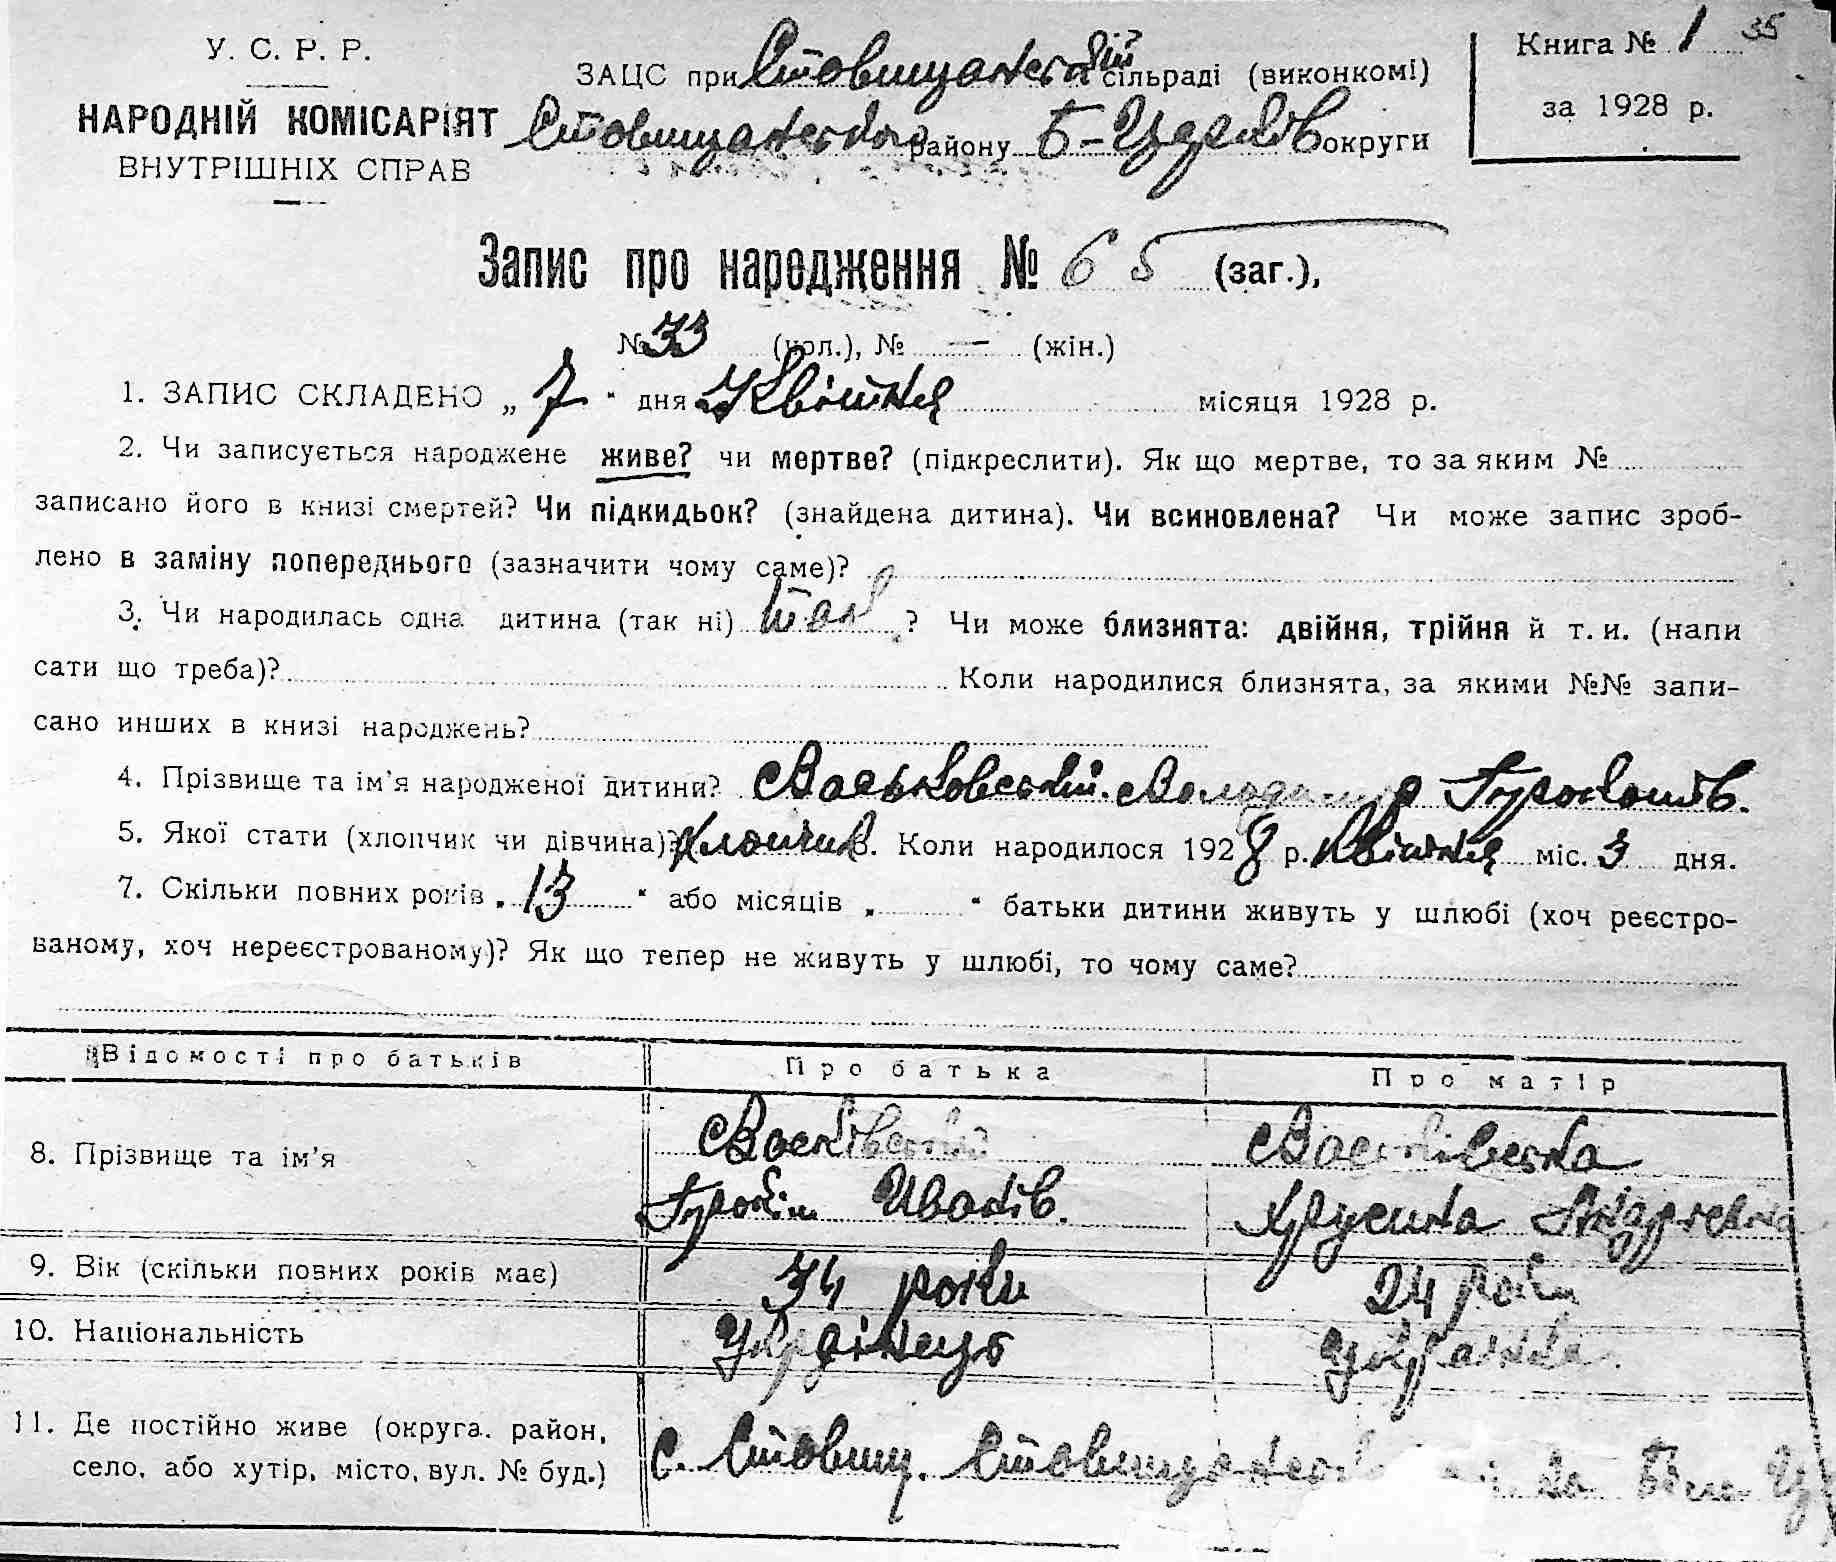 У. С. Р. Р.
НАРОДНІЙ КОМІСАРІЯТ
ВНУТРІШНІХ СПРАВ
ЗАЦС при Ставищанській сільраді (виконкомі)
Ставищанського району Б-Церків округи
Книга № 1 35
за 1928 р.
Запис про народження № 65 (заг.),
№ 33 (чол.), № — (жін.)
1. ЗАПИС СКЛАДЕНО „ 7 " дня Квітня місяця 1928 р.
2. Чи записується народжене живе? чи мертве? (підкреслити). Як що мертве, то за яким №
записано його в книзі смертей? Чи підкидьок? (знайдена дитина). Чи всиновлена? Чи може запис зроб-
лено в заміну попереднього (зазначити чому саме)?
3. Чи народилась одна дитина (так ні) так ? Чи може близнята: двійня, трійня й т. и. (напи
сати що треба)? Коли народилися близнята, за якими №№ запи-
сано инших в книзі народжень?
4. Прізвище та ім'я народженої дитини? Васьковський Володимир
5. Якої стати (хлопчик чи дівчина)? Хлопчик. Коли народилося 1928 р. Квітня міс. 3 дня.
7. Скільки повних років „ 13 " або місяців „ " батьки дитини живуть у шлюбі (хоч реєстро-
ваному, хоч нереєстрованому)? Як що тепер не живуть у шлюбі, то чому саме?
Відомості про батьків Про батька Про матір
8. Прізвище та ім'я Васківський Васьківська
Іванів. Хрусина Андріївна
9. Вік (скільки повних років має) 34 роки 24 роки
10. Національність Українець Українка
11. Де постійно живе (округа. район,
село, або хутір, місто, вул. № буд.) с. Ставищ. Ставищанськ Біла Ц